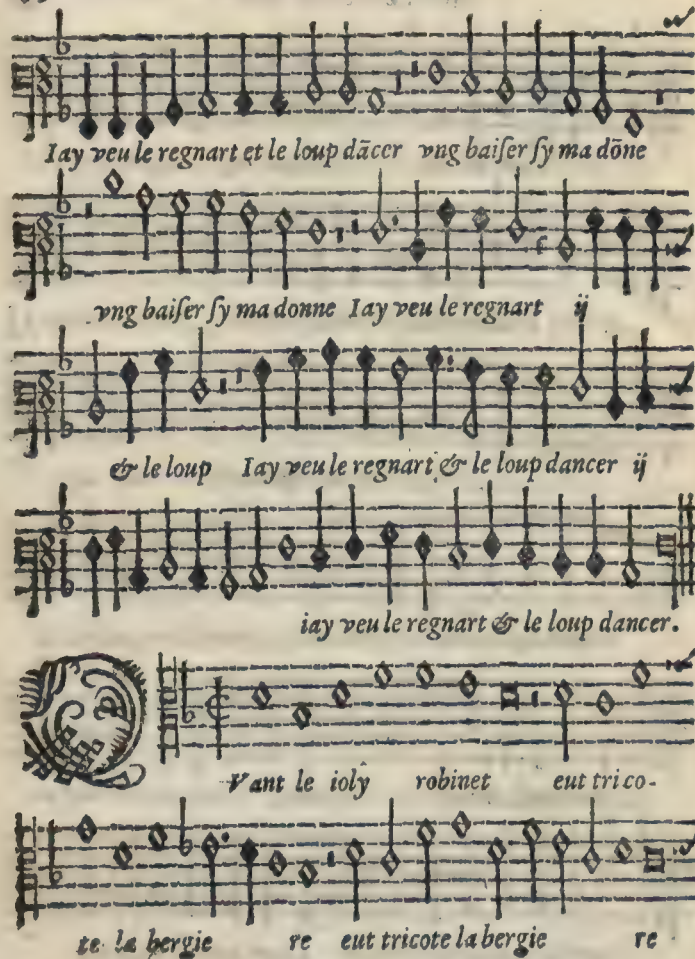 Iay veu le regnart et le loup dācer vng baiſer ſy ma dōne
vng baiſer ſy ma donne Iay veu le regnart ij
& le loup Iay veu le regnart & le loup dancer ij
iay veu le regnart & le loup dancer.
QVant le ioly robinet eut trico-
te la bergie re eut tricote la bergie re